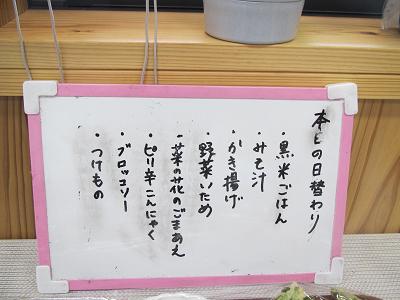 本日の日替わり
・黒米ごはん
・みそ汁
・かき揚げ
・野菜いため
・菜の花のごまあえ
・ピリ辛こんにゃく
・ブロッコリー
・つけもの